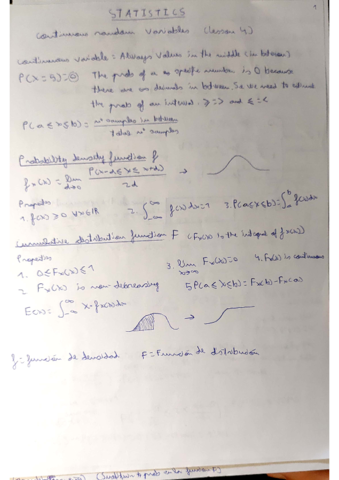 STATISTICS
Continuous random variables (Lesson 4)
Continuous variable: Always values in the middle (in between)
P(X=5)=0 The prob of a specific number is 0 because
there are decimals in between. So we need to
the prob of an interval. ≥ => and ≤ = <
P(a≤x≤b) = nº samples in between
Total nº samples
Probability density function f
fx(x) = lim P(x-d≤X≤x+d) →
d→0 2d
Properties
1. f(x) ≥ 0 ∀x∈ℝ 2. ∫ f(x)dx=1 3. P(a≤x≤b)=∫ f(x)dx
Cumulative distribution function F (Fx(x) is the integral of fx(x))
Properties
1. 0≤Fx(x)≤1 3. lim Fx(x)=0 4. Fx(x) is continuous
2. Fx(x) is non decreasing 5 P(a≤x≤b)=Fx(b)-Fx(a)
E(x)=∫ x·fx(x)dx
→
f = función de densidad F = Función de distribución